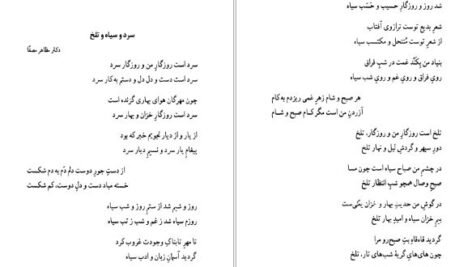 سرد و سیاه و تلخ
دکتر مظاهر مصفا
سرد است روزگارِ من و روزگار سرد
سرد است دست و دل دل و دستم به کار سرد
چون مهرگان هوای بهاری گزنده است
سرد است روزگار خزان و بهار سرد
از یار و از دیار نجویم خبر که بود
پیغامِ یار سرد و نسیمِ دیار سرد
از دستِ جورِ دوست دلم دَم به دم شکست
خسته مباد دست و دلِ دوست، کم شکست
روز و شبم شد از ستمِ روز و شب سیاه
روزم سیاه شد ز غم و شب ز تب سیاه
تا مهرِ تابناکِ وجودت غروب کرد
گردید آسمانِ زبان و ادب سیاه
شد روز و روزگارِ حسیب و حَسَب سیاه
شعرِ بدیعِ توست ترازوی آفتاب
از شعرِ توست مُنتحل و مکتسب سیاه
بنیاد من بِکَنْد غمت در شبِ فراق
رویِ فراق و رویِ غم و رویِ شب سیاه
هر صبح و شام زهرِ غمی ریزدم به کام
آزردنِ من است مگر کامِ صبح و شام
تلخ است روزگارِ من و روزگار، تلخ
دورِ سپهر و گردشِ لیل و نهار تلخ
در چشمِ من صباح سیاه است چون مسا
صبحِ وصال همچو شبِ انتظار تلخ
در گوشِ من حدیثِ بهار و خزان یکی‌ست
بیرِ خزان سیاه و امیدِ بهار تلخ
گردید قاه‌قاهِ بتِ صبح‌رو مرا
چون های‌هایِ گریهٔ شب‌های تار، تلخ